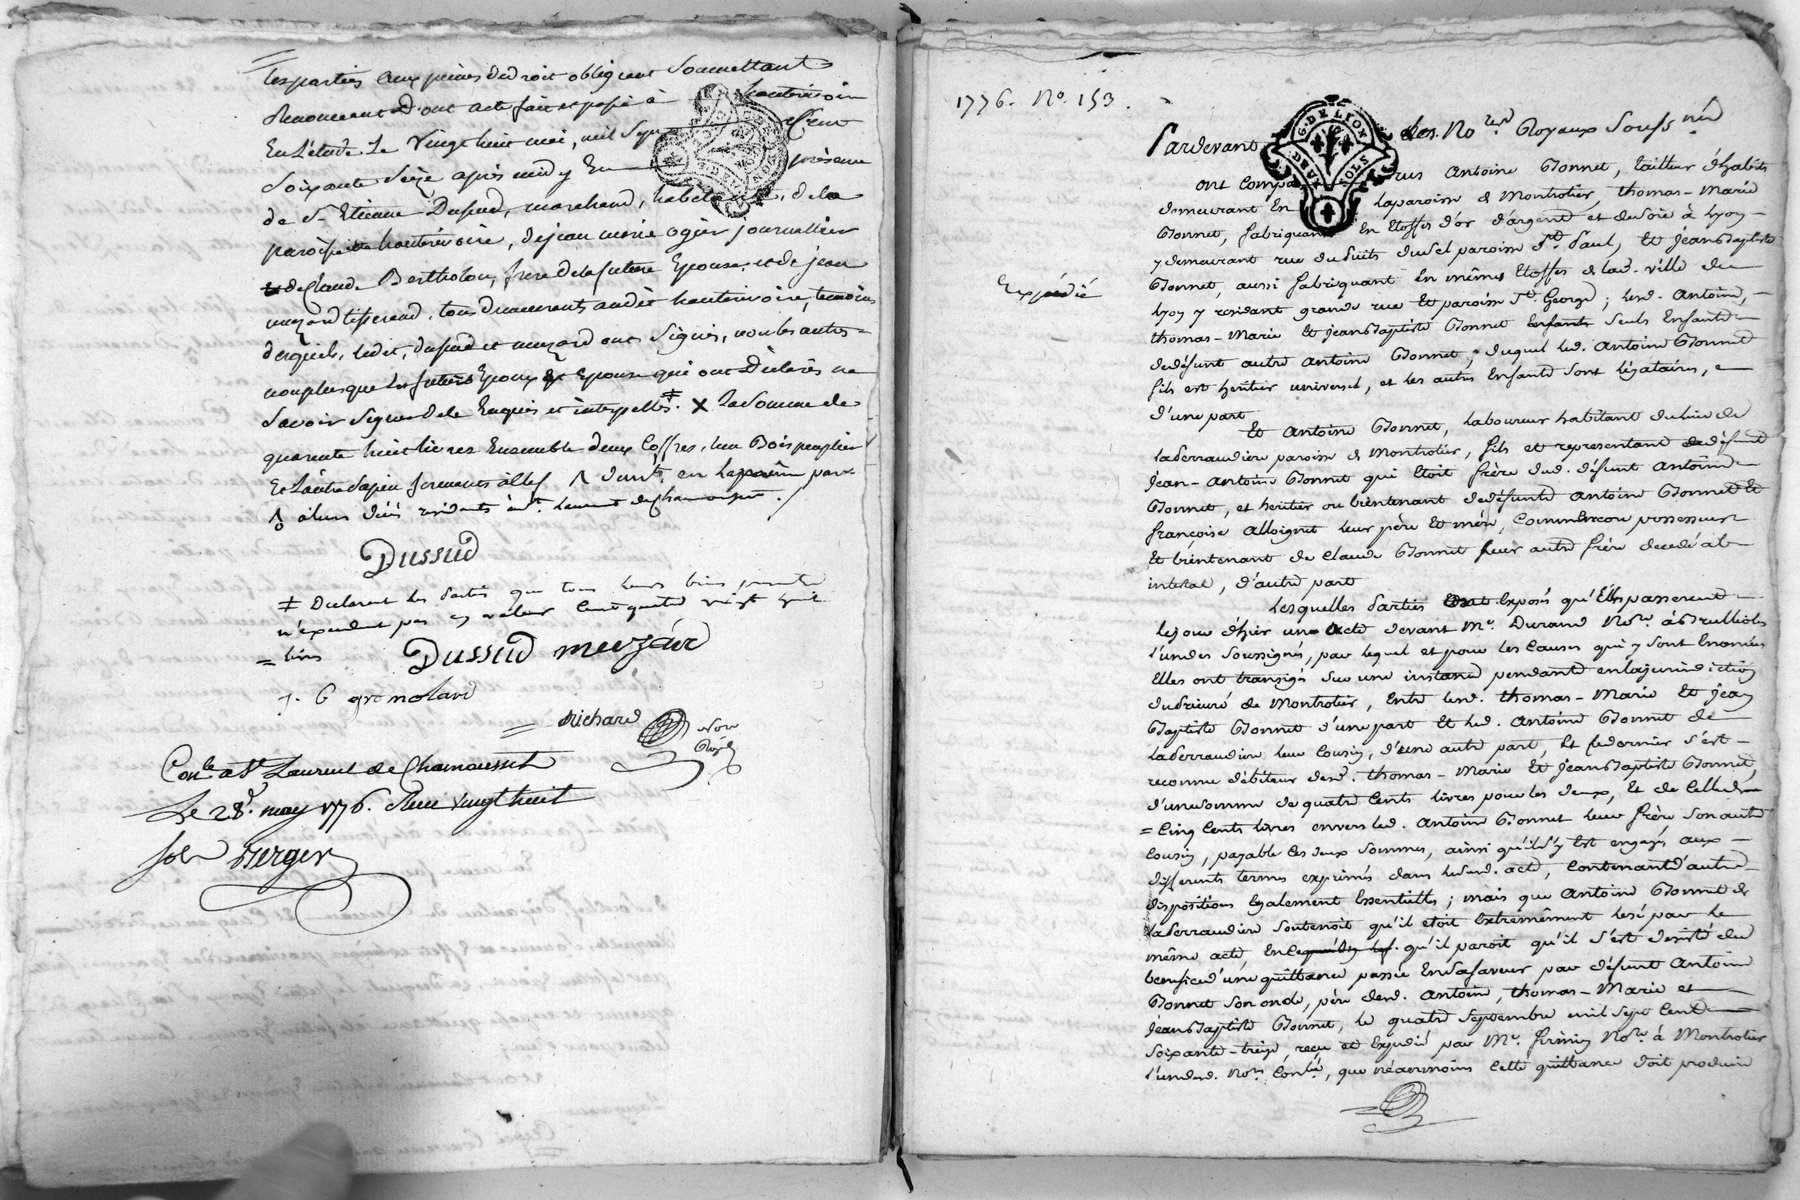 les parties aux peines de droit obligeant Soumettant
Renonceant D'ont acte fait et passé à hauterivoire
En L'étude Le Vingt huit mai, mil Sept Cent
Soixante Seize après midy En présence
de Sr. Etienne Dussud, marchand, habitant, de la
paroisse de hauterivoire, de jean marie ogier journallier
de Claude Bertholon, frere de la future Epouse, et de jean
muzard tisserand, tous demeurants audit hauterivoire, temoins
desquels, ledit, dussud et muzard ont Signés, non les autres
non plus que les futurs Epoux et Epouse qui ont Déclarés ne
Savoir Signer de ce Enquis et interpellés ‡. X La Somme de
quarante huit livres Ensemble deux Coffres, l'un Bois peuplier
Et L'autre Sapin fermants à Clef
résidents à St. Laurent de Chamousset ./
Dussud
‡ Declarent les Parties que tous leurs biens
n'excedent pas en valeur Cent quatre vingt huit
= livres Dussud muzard
J. C grenotard
= Richard Nore
Royal
Conlé à St Laurent de Chamousset
Le 28e. may 1776. Reçu vingt huit
sols Berger
1776. No. 153.
Pardevant les Nores. Royaux Soussnés
ont Comparus Antoine Bonnet, tailleur d'habits
demeurant En la paroisse de Montrotier, thomas-Marie
Bonnet, fabriquant En Etoffes d'or d'argent et de Soie à Lyon
y demeurant rue du Puits du Sel paroisse St. Paul, Et Jean Baptiste
Expédié
Bonnet, aussi fabriquant En mêmes Etoffes de lad. ville de
Lyon y residant grande rue Et paroisse St. George; lesd. Antoine,
thomas-Marie Et Jean Baptiste Bonnet Enfants Seuls Enfants
de défunt autre Antoine Bonnet, duquel led. Antoine Bonnet
fils est heritier universel, et les autres Enfants Sont légataires,
d'une part
Et Antoine Bonnet, Laboureur habitant du lieu de
la Perraudiere paroisse de Montrotier, fils et representant de défunt
Jean-Antoine Bonnet qui Etoit frère dud. défunt Antoine
Bonnet, et heritier ou bientenant de défunts Antoine Bonnet Et
françoise Alloignet leur père Et mère, Comm'Encore possesseur
Et bientenant de Claude Bonnet leur autre frère decedé ab
intestat, d'autre part
Lesquelles Parties Ont Exposés qu'Elles passerent
le jour d'hier un Acte devant Me. Durand Nore. à Brullioles
l'un des Soussignés, par lequel et pour les Causes qui y Sont Enoncées
Elles ont transigé Sur une instance pendante en la jurisdiction
du Prieuré de Montrotier, Entre lesd. thomas-Marie Et Jean
Baptiste Bonnet d'une part Et led. Antoine Bonnet de
la Perraudiere leur Cousin, d'une autre part, Et ce dernier s'est
reconnu débiteur desd. thomas-Marie Et Jean Baptiste Bonnet,
d'une Somme de quatre Cents livres pour les deux, Et de Celle de
= Cinq Cents livres envers led. Antoine Bonnet leur frère Son autre
Cousin, payable Ces deux Sommes, ainsi qu'il s'y Est engagé, aux
differents termes exprimés dans le susd. acte, Contenant d'autres
dispositions Egalement Essentielles; mais que Antoine Bonnet de
la Perraudiere Soutenoit qu'il etoit Extremêment lesé par le
même acte, En ce qu'il paroit qu'il S'est desisté du
benefice d'une quittance passée En Sa faveur par défunt Antoine
Bonnet Son oncle, père desd. Antoine, thomas-Marie et
Jean Baptiste Bonnet, le quatre Septembre mil Sept Cent
Soixante-treize, reçue et Expédié par Me. firmin Nore. à Montrotier
l'un desd. Nores. Conlé, que néanmoins Cette quittance doit produire